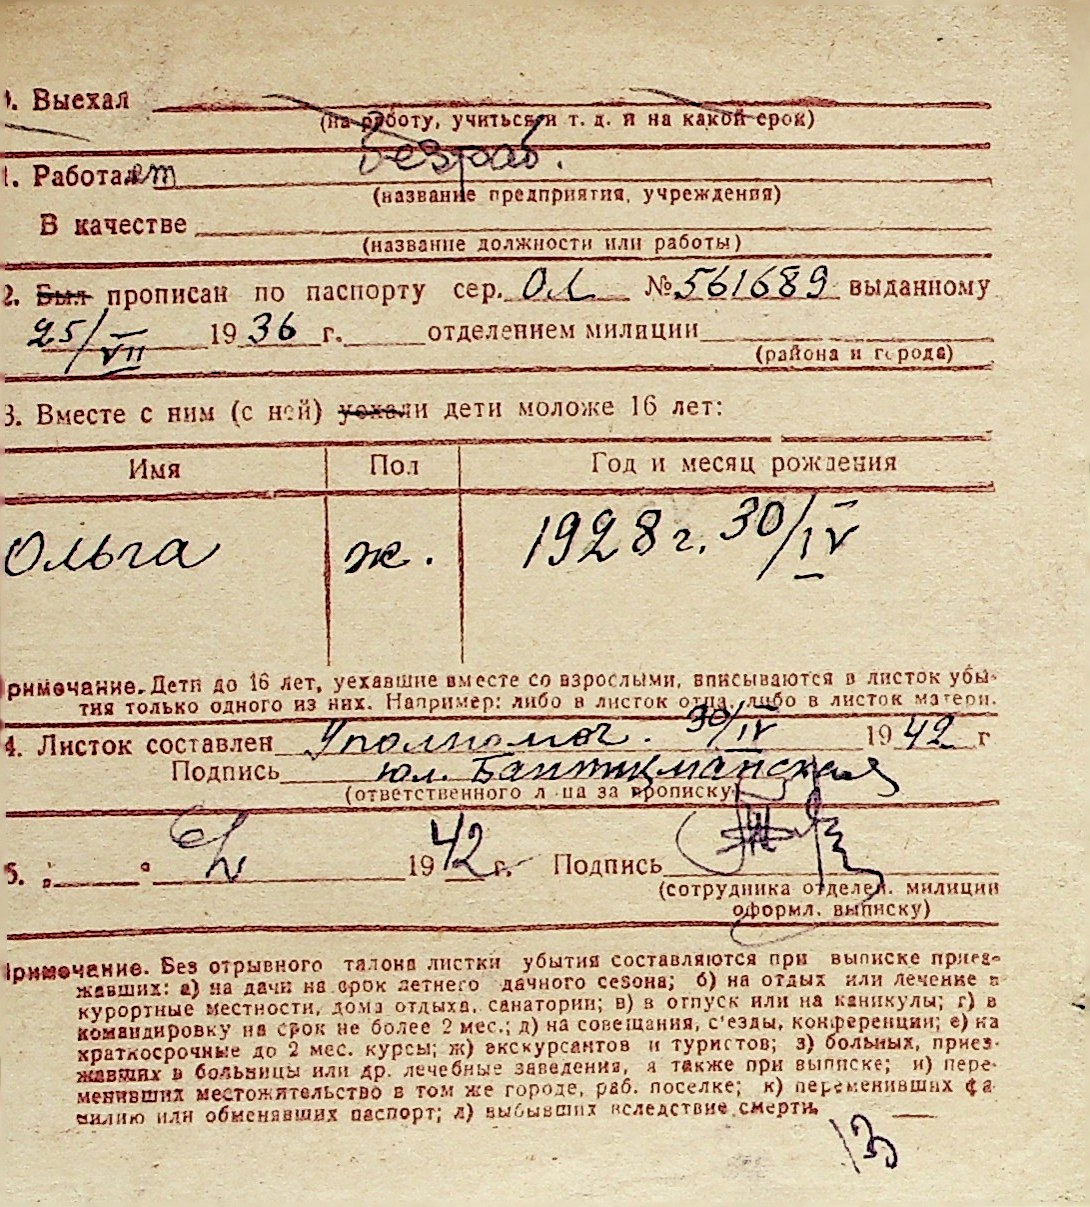 0. Выехал
(на работу, учиться и т. д. и на какой срок)
1. Работает Безраб.
(название предприятия, учреждения)
В качестве
(название должности или работы)
2. Был прописан по паспорту сер. ОЛ № 561689 выданному
25/VII 1936 г. отделением милиции
(района и города)
3. Вместе с ним (с ней) уехали дети моложе 16 лет:
Имя Пол Год и месяц рождения
Ольга ж. 1928 г. 30/IV
римечание. Дети до 16 лет, уехавшие вместе со взрослыми, вписываются в листок убы-
тия только одного из них. Например: либо в листок отца, либо в листок матери.
4. Листок составлен Уполномоч. 30/IV 1942 г
Подпись
(ответственного лица за прописку
5. " " 1942 г. Подпись
(сотрудника отделен. милиции
оформл. выписку)
Примечание. Без отрывного талона листки убытия составляются при выписке приез-
жавших: а) на дачи на срок летнего дачного сезона; б) на отдых или лечение в
курортные местности, дома отдыха, санатории; в) в отпуск или на каникулы; г) в
командировку на срок не более 2 мес.; д) на совещания, с'езды, конференции; е) на
краткосрочные до 2 мес. курсы; ж) экскурсантов и туристов; з) больных, приез-
жавших в больницы или др. лечебные заведения, а также при выписке; и) пере-
менивших местожительство в том же городе, раб. поселке; к) переменивших фа-
милию или обменявших паспорт; л) выбывших вследствие смерти.
13